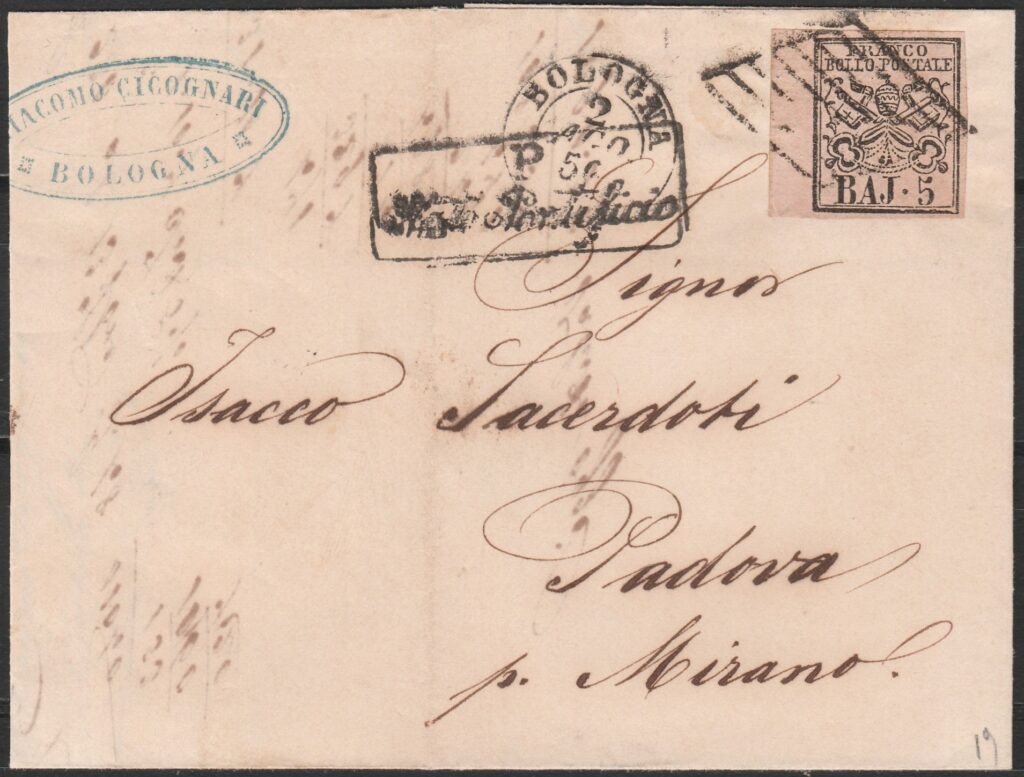 GIACOMO CICOGNARI
BOLOGNA
BOLOGNA
2
AGO
56
P
Pontificio
FRANCO
BOLLO POSTALE
BAJ. 5
Signor
Isacco Sacerdoti
Padova
p. Mirano.
19